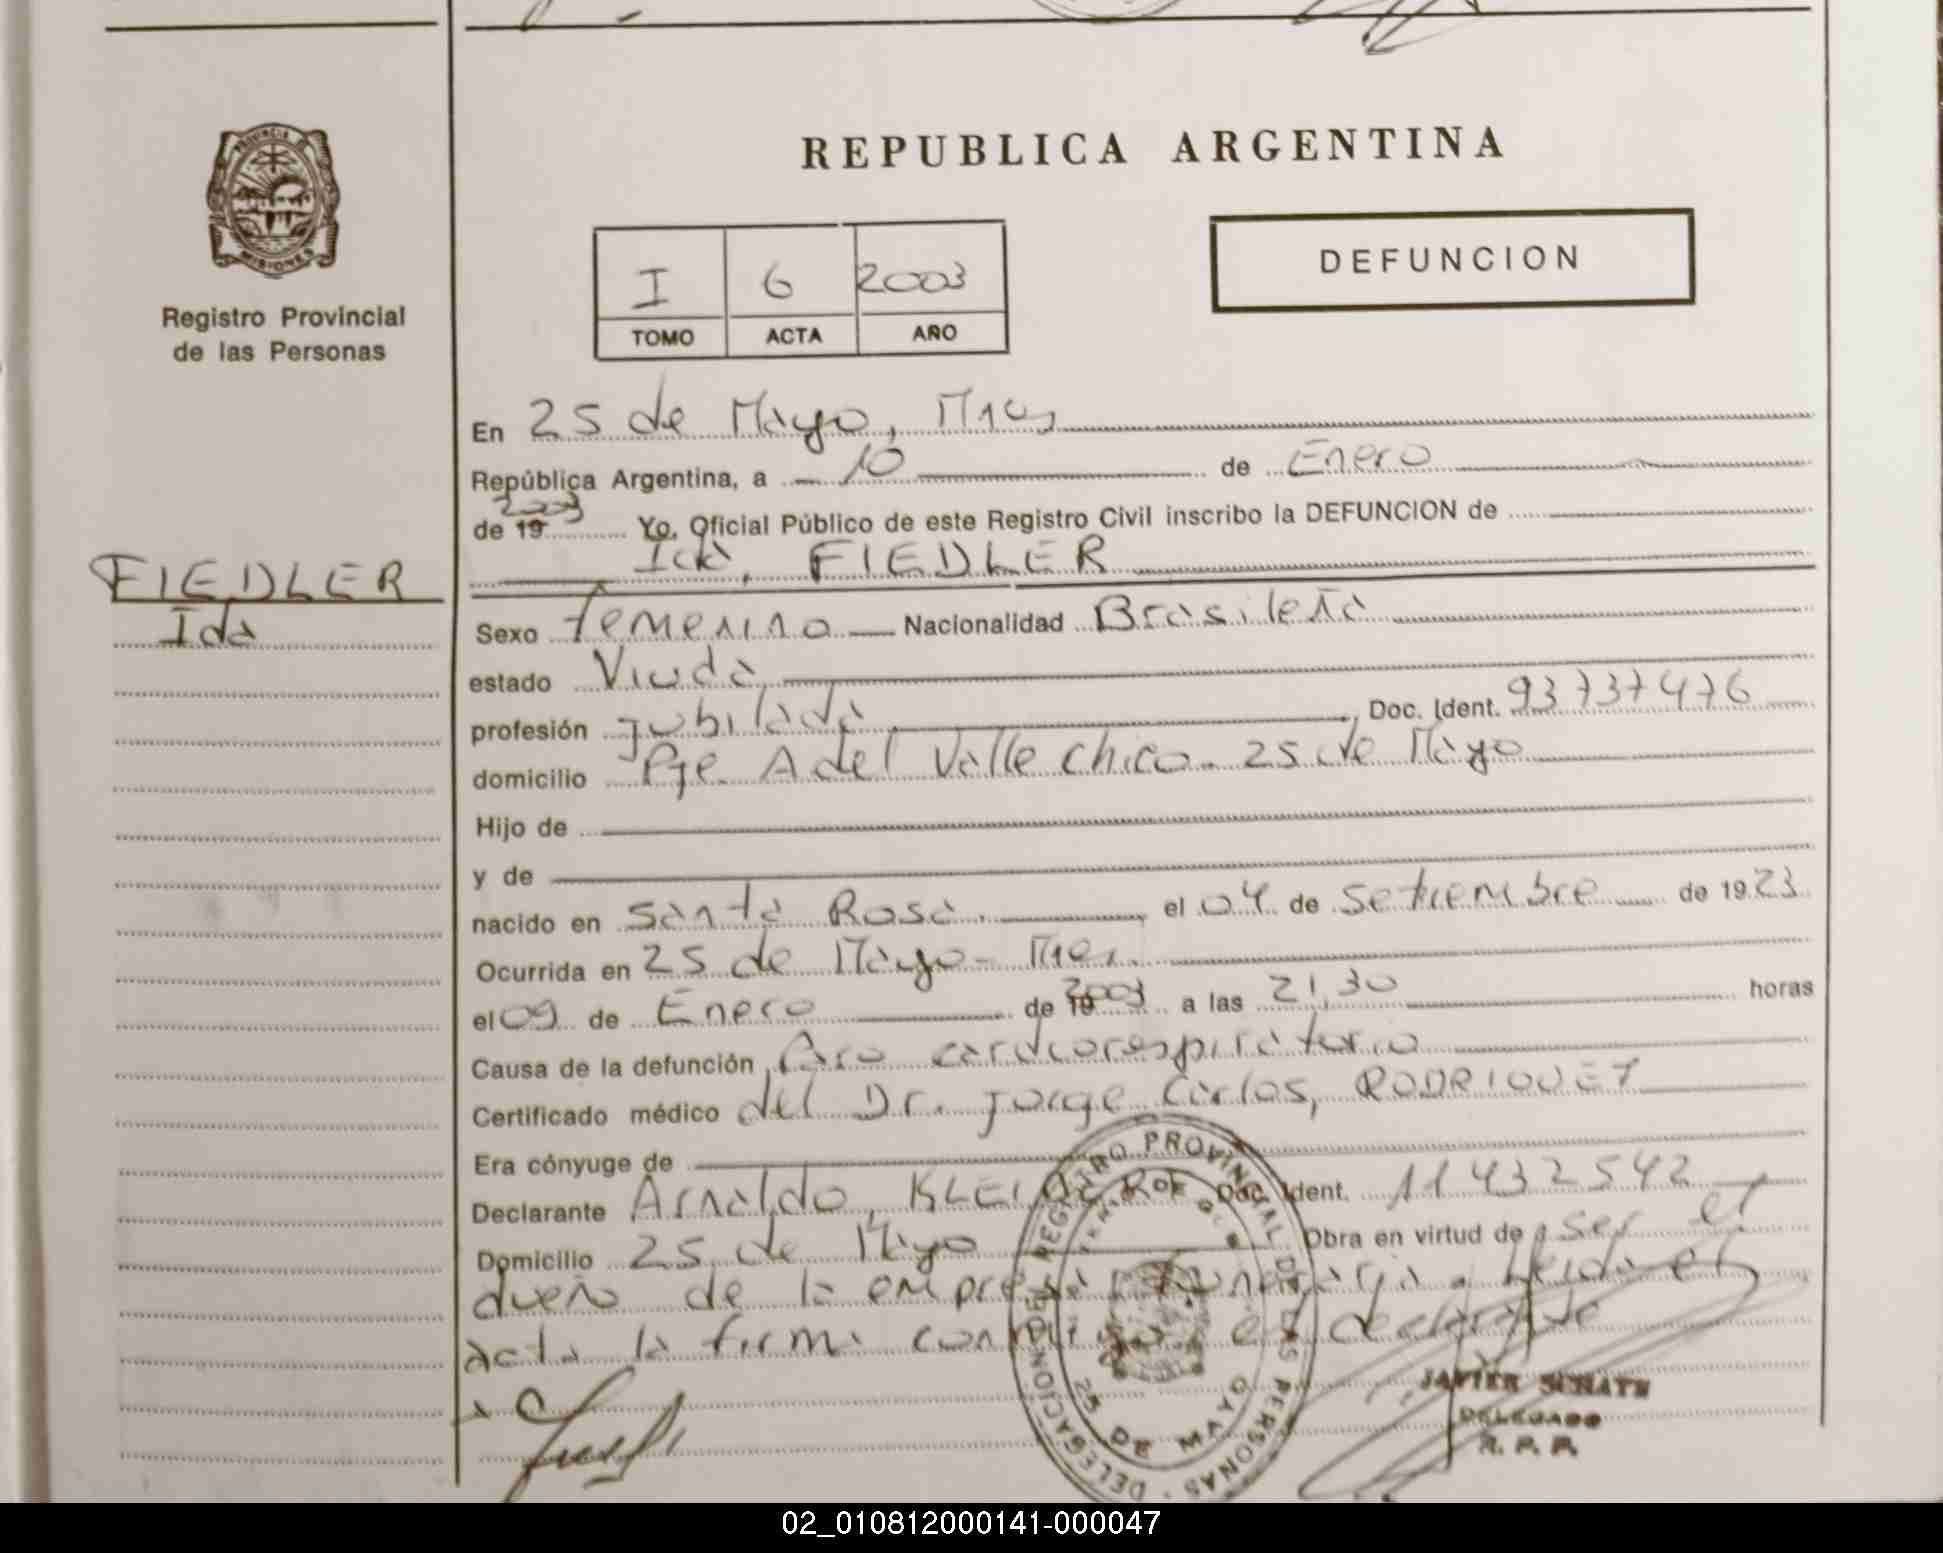 REPUBLICA ARGENTINA
PROVINCIA DE MISIONES
Registro Provincial
de las Personas
I 6 2003
TOMO ACTA AÑO
DEFUNCION
En 25 de Mayo, Mnes
República Argentina, a 10 de Enero
de 19 2003 Yo, Oficial Público de este Registro Civil inscribo la DEFUNCION de
Ida, FIEDLER
FIEDLER
Ida
Sexo Femenino Nacionalidad Brasileña
estado Viuda
profesión jubilada Doc. Ident. 93737476
domicilio Pje. A del Valle Chico. 25 de Mayo
Hijo de
y de
nacido en Santa Rosa. el 04 de Setiembre de 1923
Ocurrida en 25 de Mayo-
el 09 de Enero de 19 2003 a las 21,30 horas
Causa de la defunción Paro cardiorespiratorio
Certificado médico del Dr. Jorge Carlos, RODRIGUEZ
Era cónyuge de
Declarante Arnaldo, Doc. Ident. 11432542
Domicilio 25 de Mayo Obra en virtud de ser el
dueño de la empresa funeraria. Leida el
acta la firma conmigo, el declarante
DELEGACION DEL REGISTRO PROVINCIAL DE LAS PERSONAS
25 DE MAYO
JAVIER SCHATH
DELEGADO
R. P. P.
02_010812000141-000047